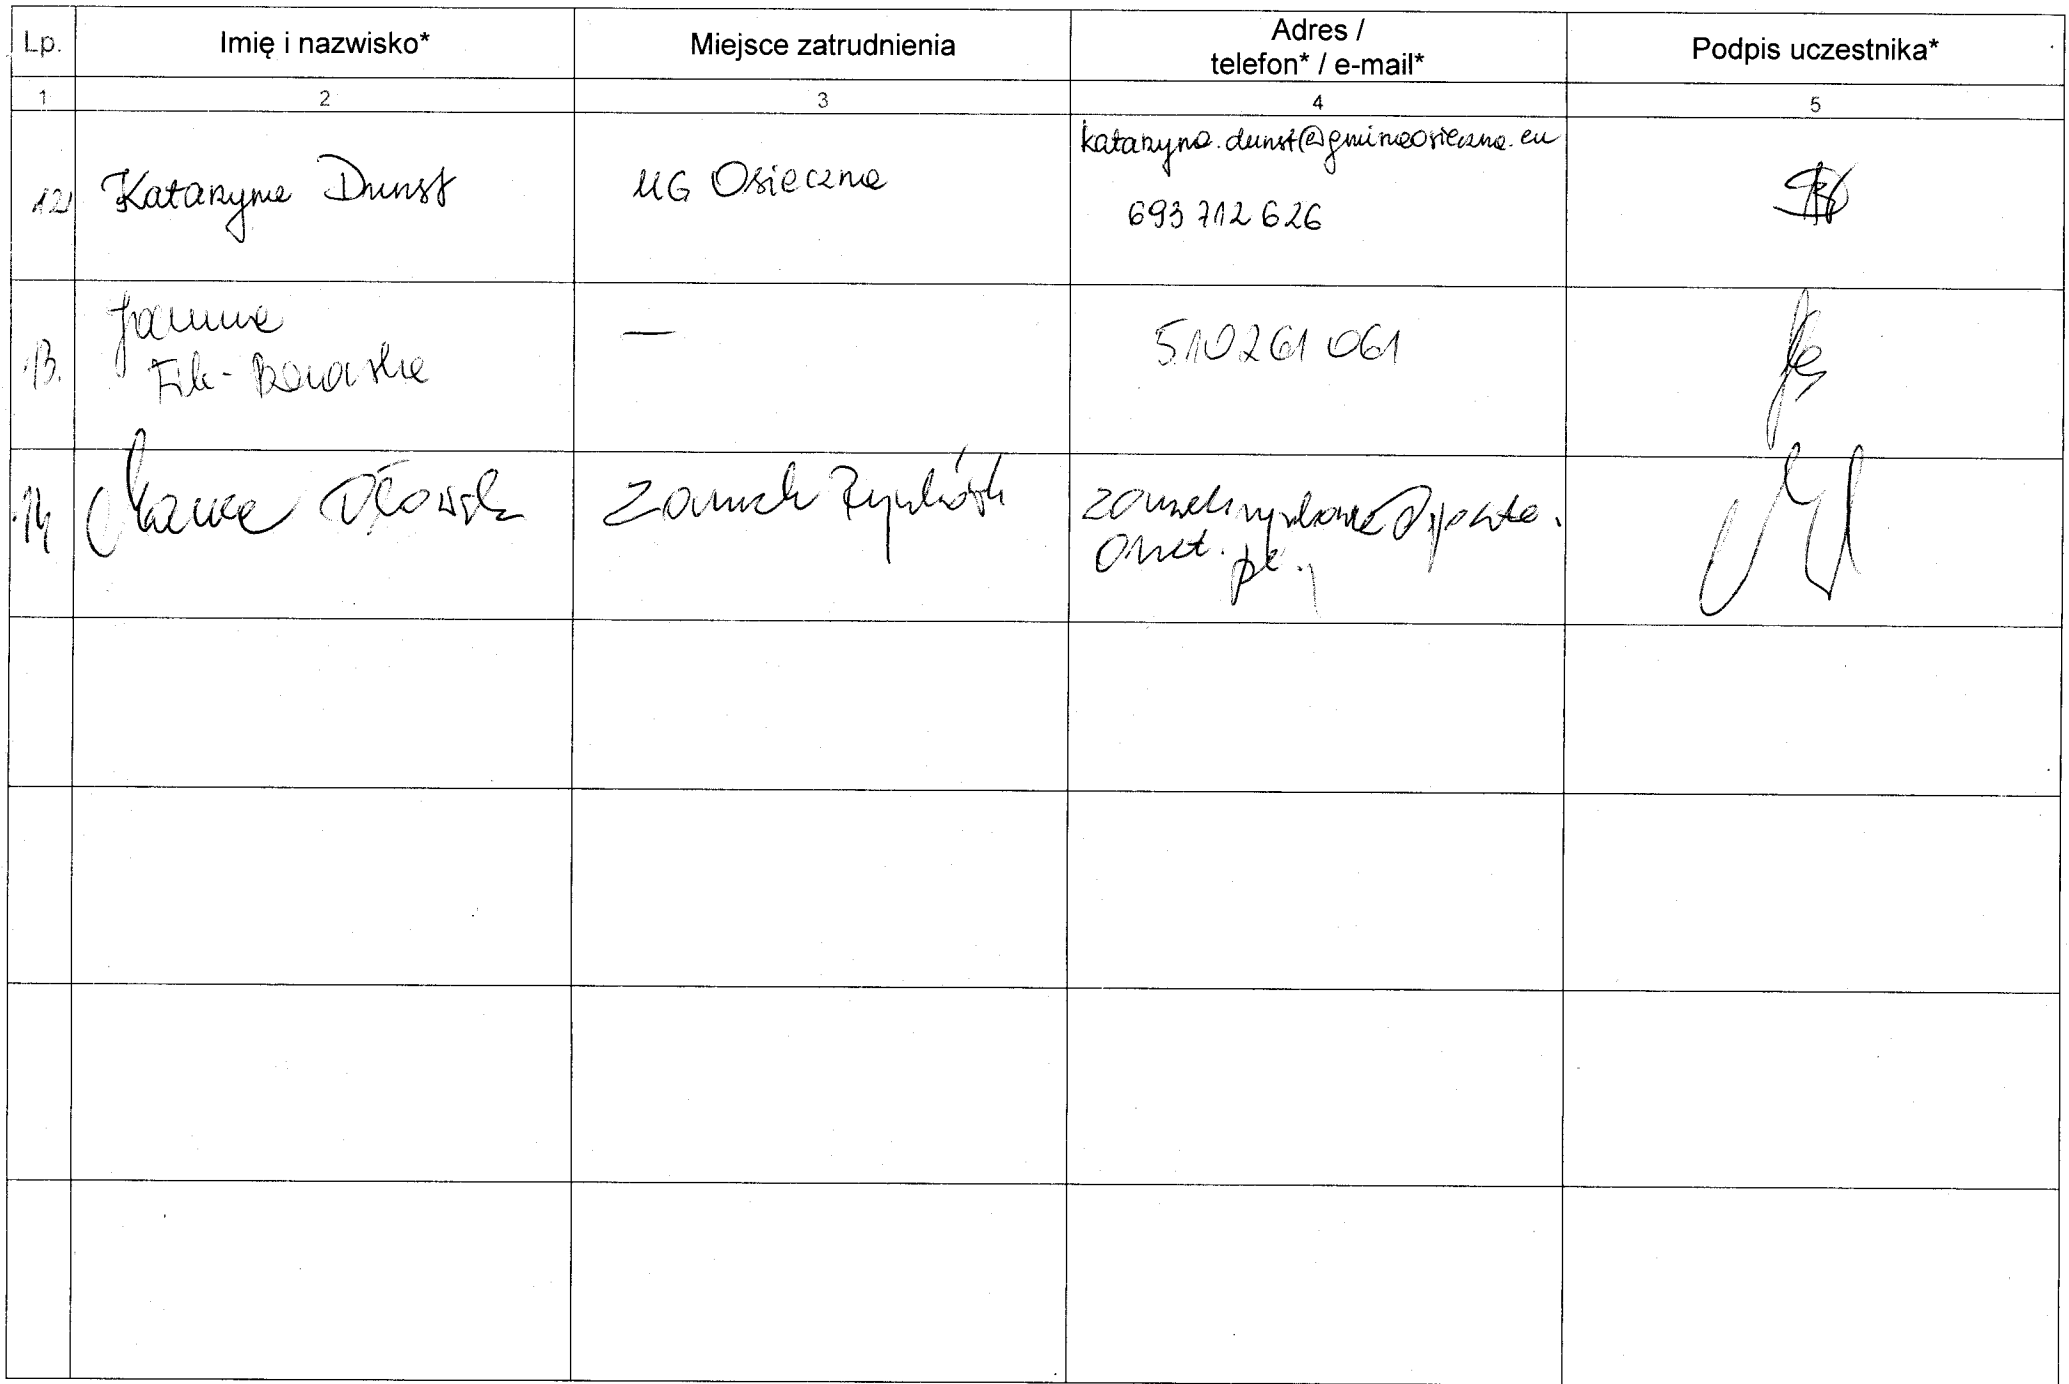 Lp.
Imię i nazwisko*
Miejsce zatrudnienia
Adres /
telefon* / e-mail*
Podpis uczestnika*
1
2
3
4
5
12
Katarzyna Dunst
UG Osieczna
katarzyna.dunst@gminaosieczna.eu
693 712 626
13.
Joanna
—
510 261 061
14
Zamek
onet.pl